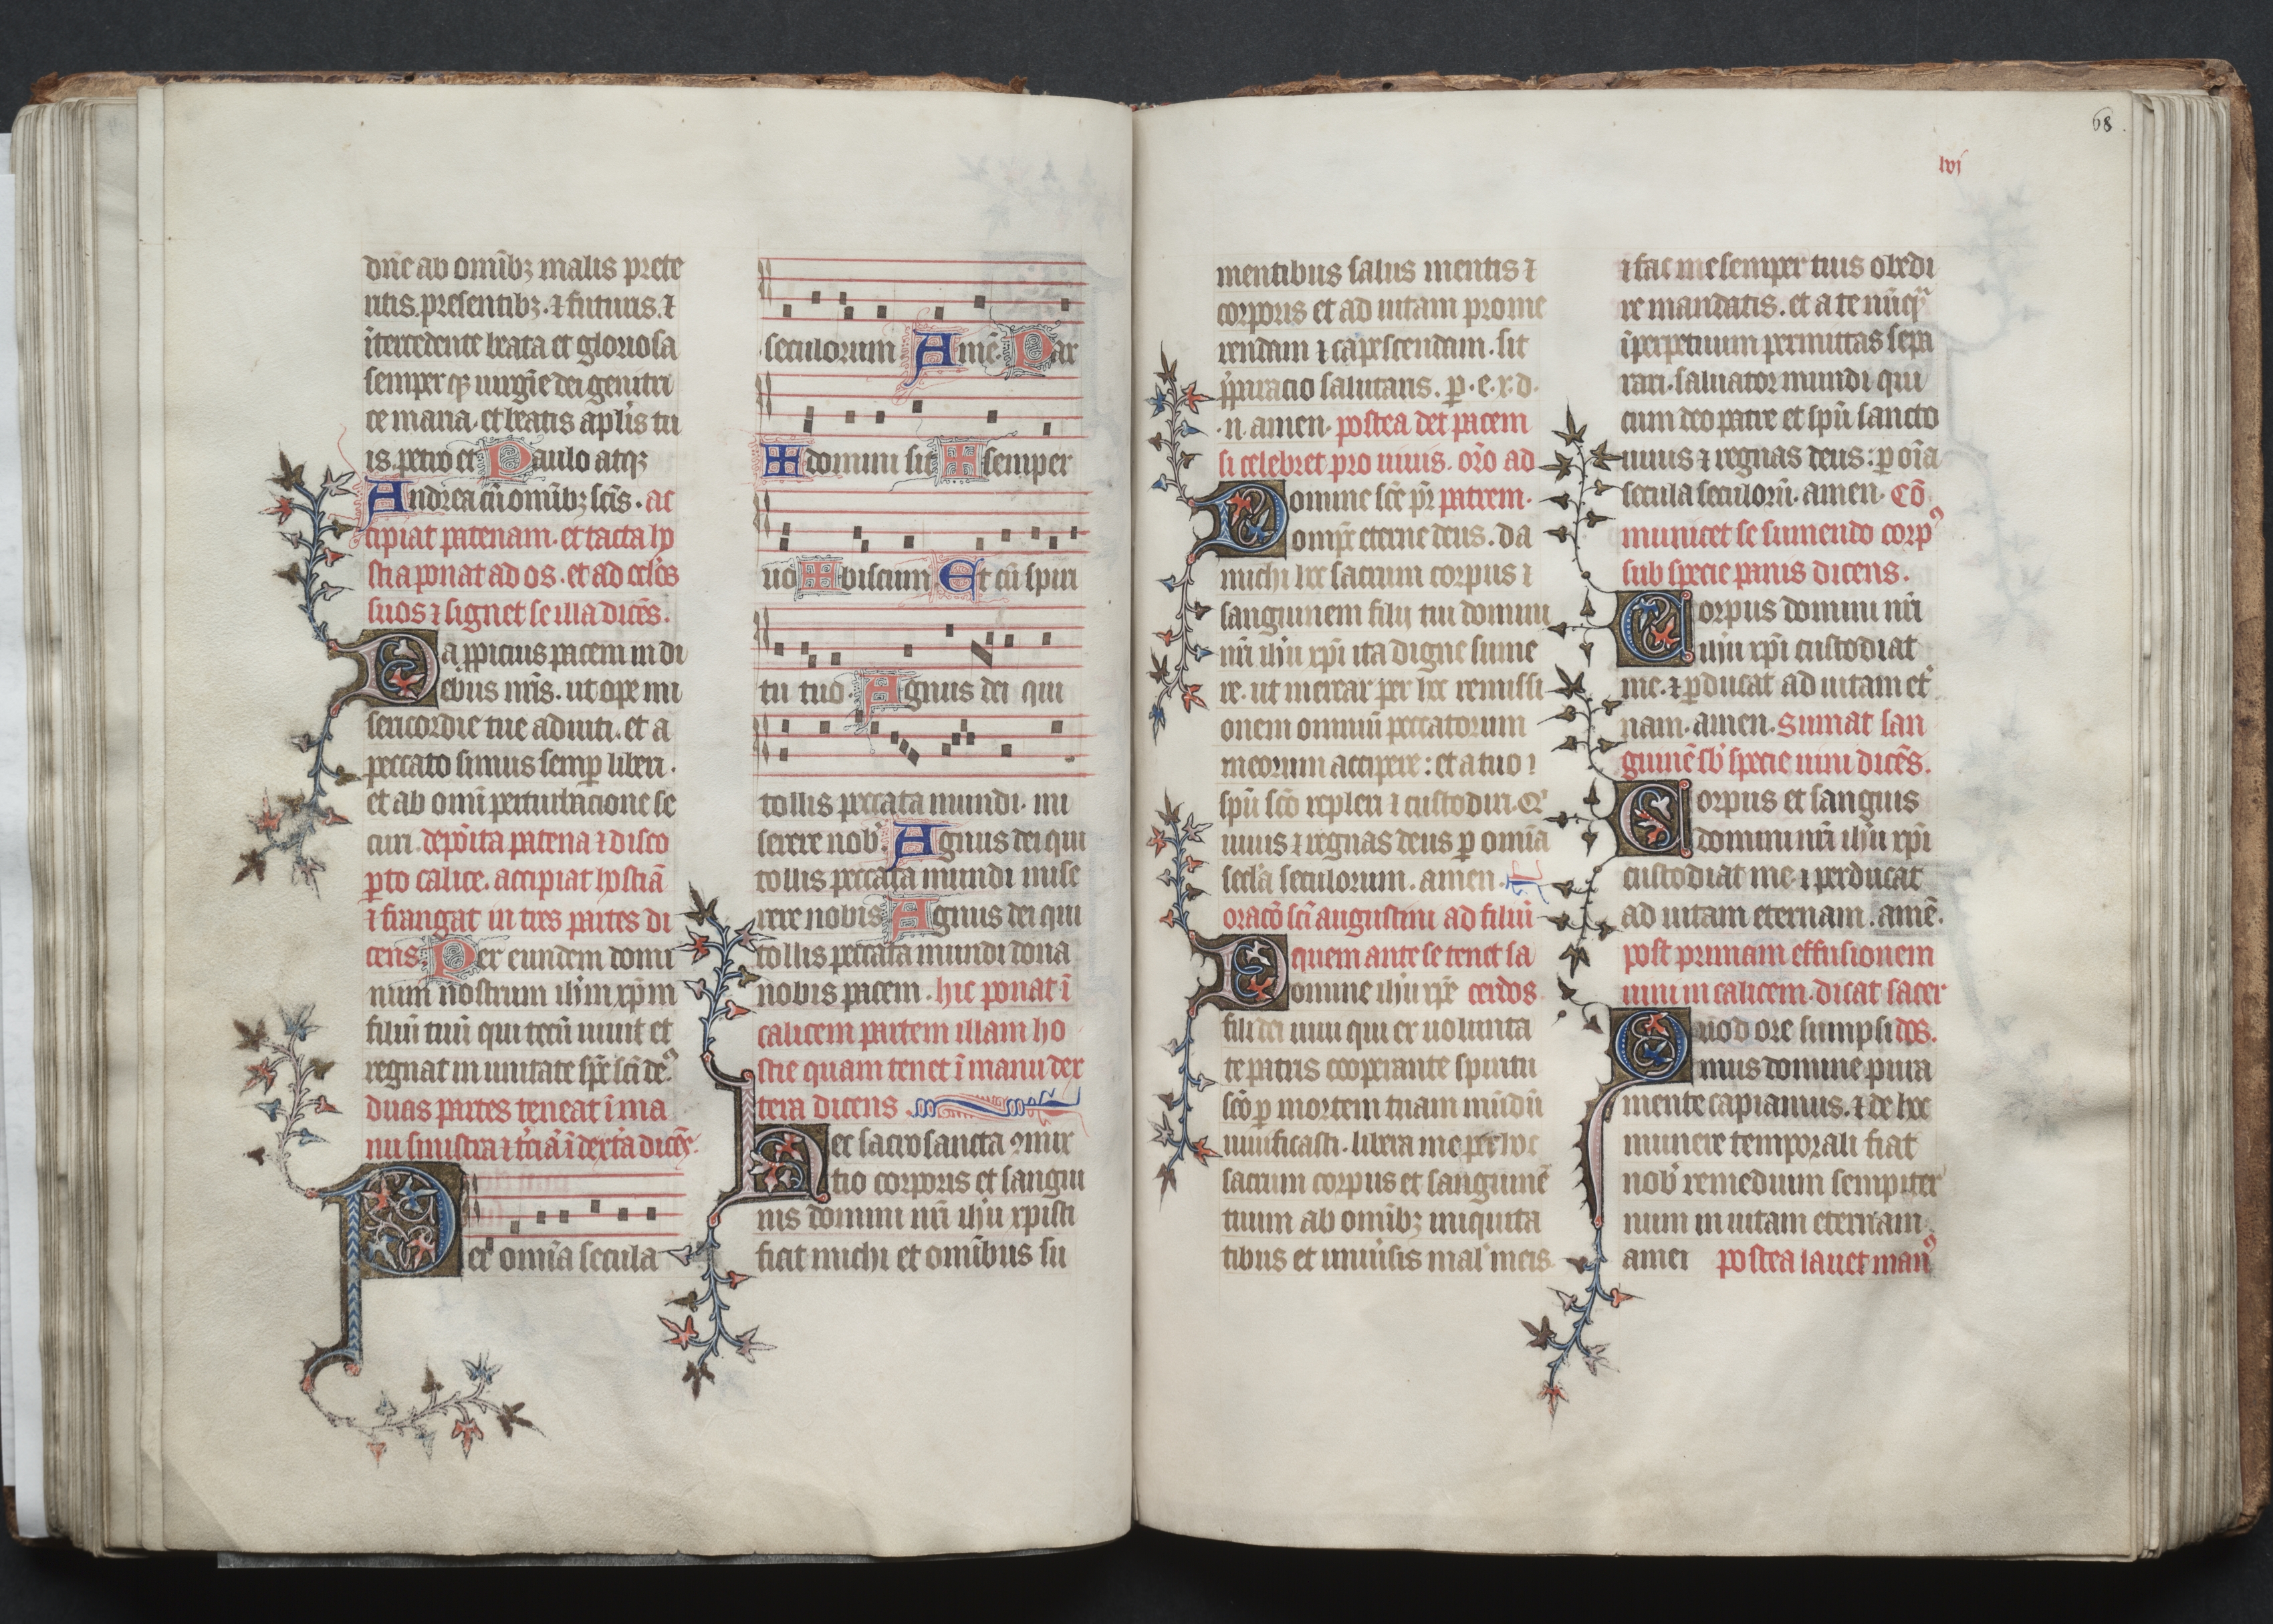 dn̄e ab om̄ibꝫ malis prete
ritis. presentibꝫ. ⁊ futuris. ⁊
ītercedente beata et gloriosa
semper qꝫ uirgīe dei genitri
ce maria. et beatis apl̄is tu
is. petro et Paulo atqꝫ
Andrea cū om̄ibꝫ sc̄is. ac
cipiat patenam. et tacta ho
stia ponat ad os. et ad oc̄los
suos ⁊ signet se illa dicēs.
Da ꝓpicius pacem in di
ebus nr̄is. ut ope mi
sericordie tue adiuti. et a
peccato simus semꝑ liberi.
et ab om̄i perturbacione se
curi. depōita patena ⁊ disco
ꝑto calice. accipiat hostiā
⁊ frangat in tres partes di
cens. Per eundem domi
num nostrum ih̄m xp̄m
filiū tuū qui tecū uiuit et
regnat in unitate sp̄c sc̄i deꝰ.
duas partes teneat ī ma
nu sinistra ⁊ t̄ciā ī dext̄a dicēs.
Per om̄ia secula
seculorum Amē. Pax
domini sit semper
uobiscum Et cū spiri
tu tuo. Agnus dei qui
tollis peccata mundi. mi
serere nobꝭ. Agnus dei qui
tollis peccata mundi mise
rere nobis Agnus dei qui
tollis peccata mundi dona
nobis pacem. hic ponat ī
calicem partem illam ho
stie quam tenet ī manu dex
tera dicens
Hec sacrosancta ꝯmix
tio corporis et sangui
nis domini nr̄i ih̄u xpisti
fiat michi et omībus su
68
lvi
mentibus salus mentis ⁊
corporis et ad uitam prome
rendam ⁊ capescendam. sit
p̄paracio salutaris. ꝑ. e. x. d.
.n. amen. postea det pacem
si celebret pro uiuis. or̄o ad
Domine sc̄e pr̄ patrem.
omp̄s eterne deus. da
michi hec sacrum corpus ⁊
sanguinem filij tui domini
nr̄i ih̄u xp̄i ita digne sume
re. ut merear per hec remissi
onem omniū peccatorum
meorum accipere: et a tuo ⁊
spū sc̄o repleri ⁊ custodiri. Qͥ
uiuis ⁊ regnas deus ꝑ om̄ia
secl̄a seculorum. amen.
oracō sc̄i augustini ad filiū
quem ante se tenet sa
Domine ih̄u xp̄e cerdos.
fili dei uiui qui ex uolunta
te patris cooperante spiritu
sc̄o ꝑ mortem tuam mūdū
uiuificasti. libera me per hoc
sacrum corpus et sanguinē
tuum ab om̄ibꝫ iniquita
tibus et uniūsis malꝭ meis.
⁊ fac me semper tuis obedi
re mandatis. et a te nūqᷓ
īperpetuum permittas sepa
rari. saluator mundi qui
cum deo patre et spū sancto
uiuis ⁊ regnas deus: ꝑ oīa
secula seculorū. amen. Cō
municet se sumendo corpꝰ
sub specie panis dicens.
Corpus domini nr̄i
ih̄u xp̄i custodiat
me. ⁊ ꝑducat ad uitam et̄
nam. amen. Sumat san
guinē sb̄ specie uini dicēs.
Corpus et sanguis
domini nr̄i ih̄u xp̄i
custodiat me ⁊ perducat
ad uitam eternam. amē.
post primam effusionem
uini in calicem. dicat sacer
Quod ore sumpsi dos.
mus domine pura
mente capiamus. ⁊ de hoc
munere temporali fiat
nobꝭ remedium sempiter
num in uitam eternam.
amen postea lauet manꝰ